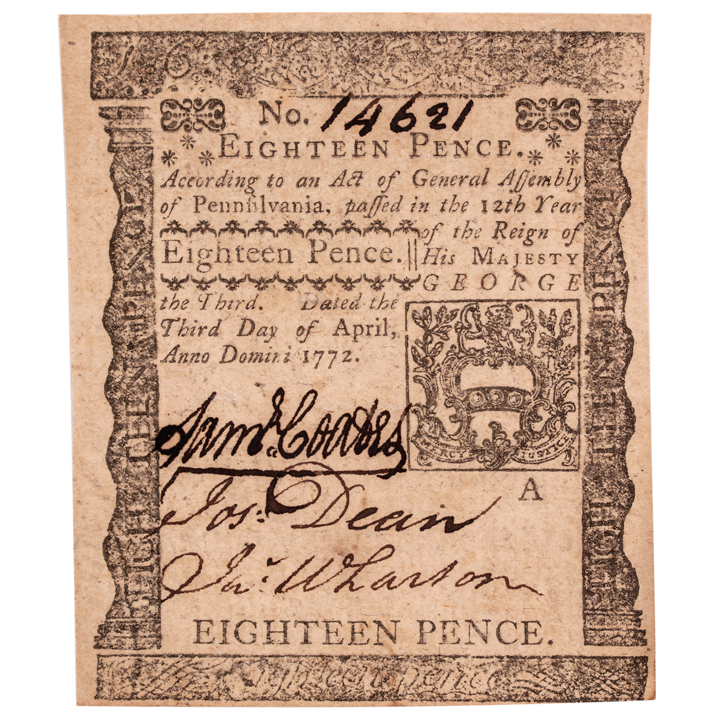 No. 14621
EIGHTEEN PENCE.
According to an Act of General Aſſembly
of Pennſilvania, paſſed in the 12th Year
of the Reign of
Eighteen Pence. His MAJESTY
GEORGE
the Third. Dated the
Third Day of April,
Anno Domini 1772.
Saml. Coates
MERCY JUSTICE
A
Jos: Dean
Jas. Wharton
EIGHTEEN PENCE.
Eighteen pence
EIGHTEEN PENCE
EIGHTEEN PENCE